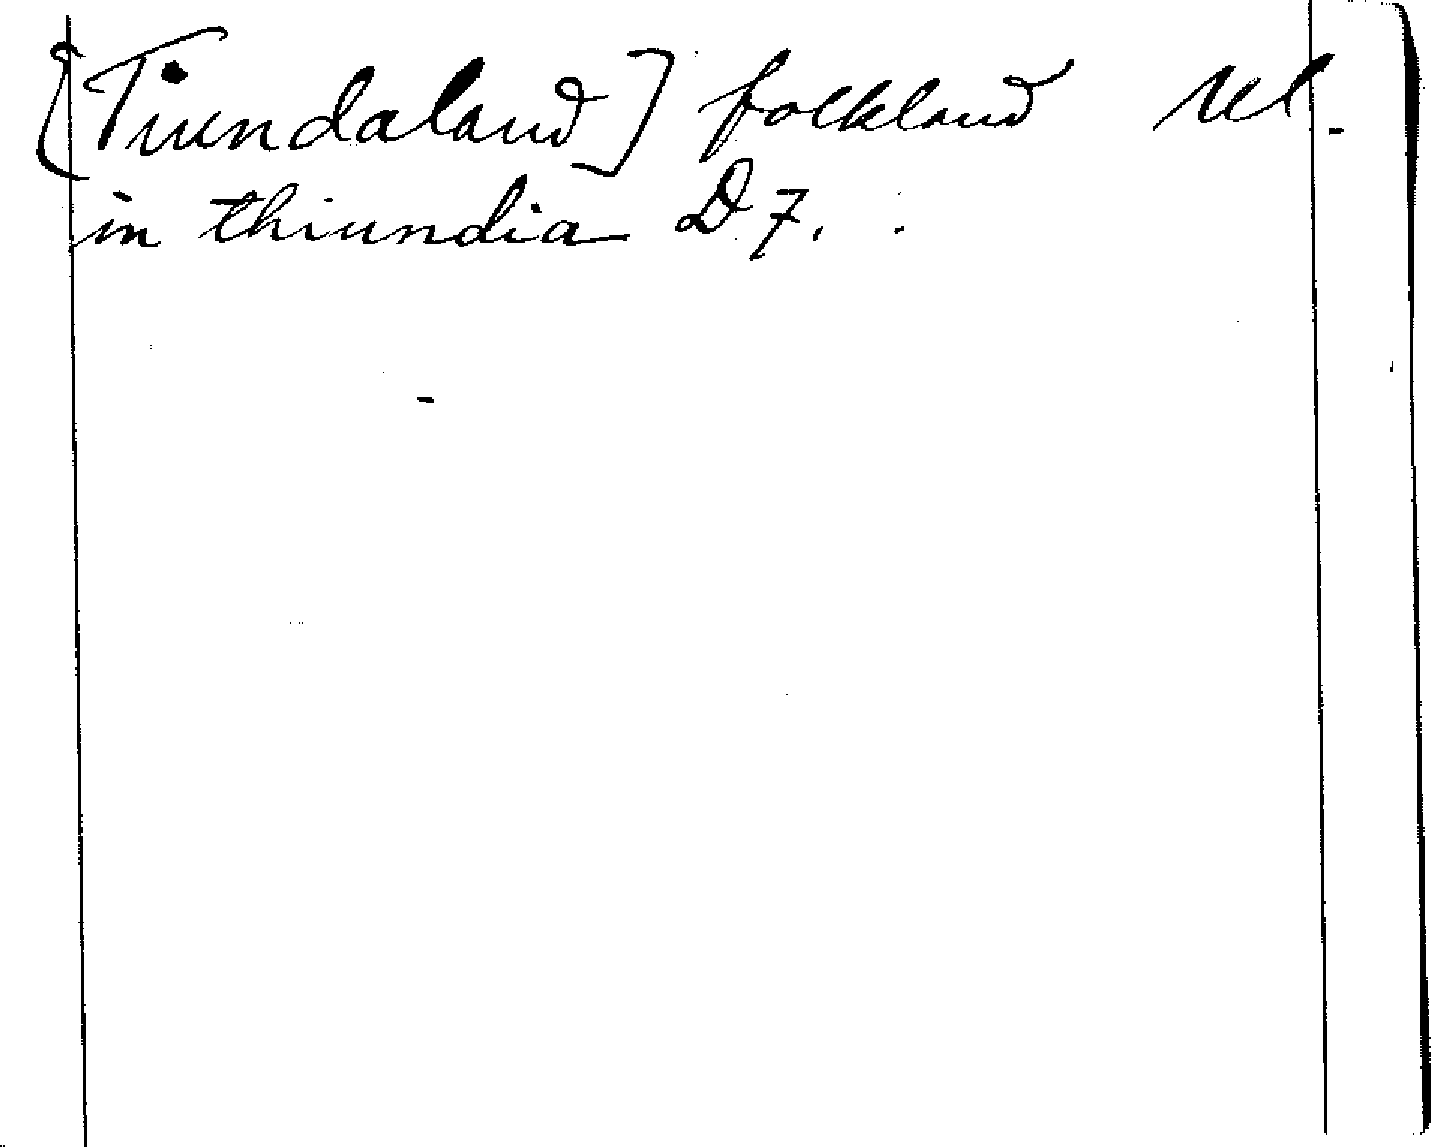 [Tiundaland] folkland Ul.
in thiundia D 7.